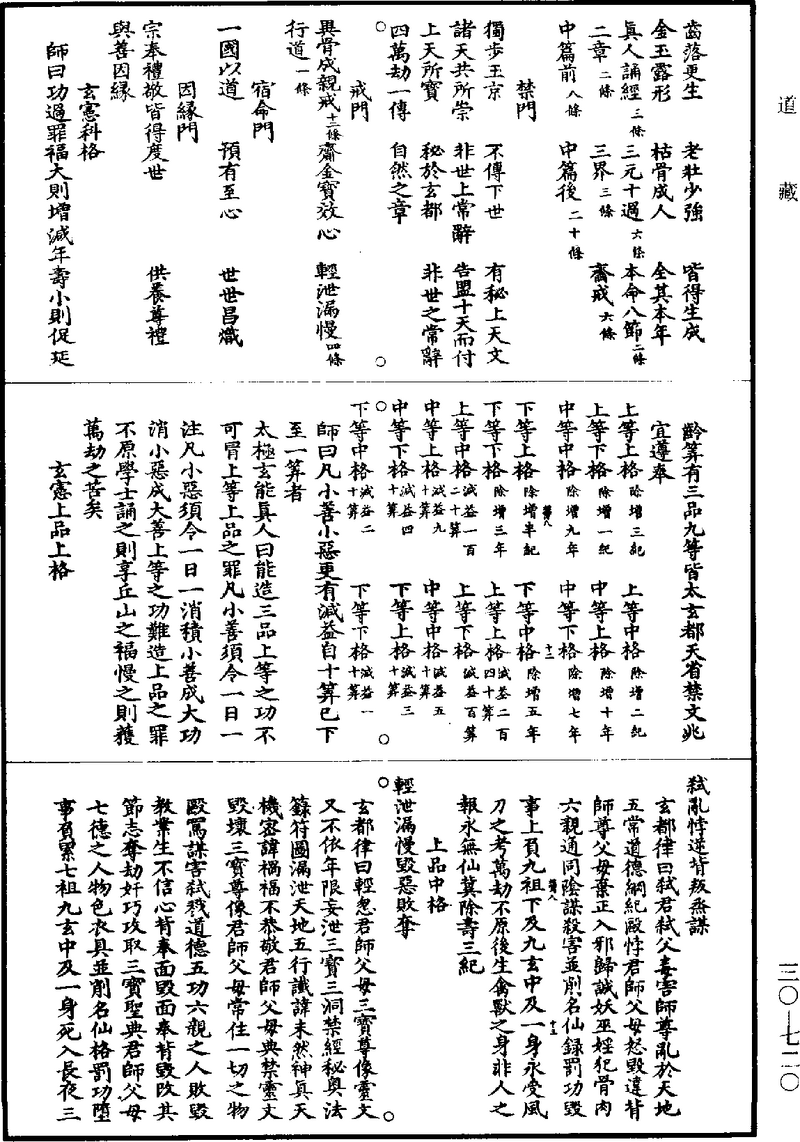 道藏
齒落更生　老壯少強　皆得生成
金玉露形　枯骨成人　全其本年
真人誦經三條　三元十過六條　本命八節二條
二章二條　三界三條　齋戒六條
中篇前八條　中篇後二十條
禁門
獨步玉京　不傳下世　有秘上天文
諸天共所崇　非世上常辭　告盟十天而付
上天所寶　秘於玄都　非世之常辭
四萬劫一傳　自然之章
戒門
異骨成親戒十二條　齋金寶效心　輕泄漏慢四條
行道一條
宿命門
一國以道　預有至心　世世昌熾
因緣門
宗奉禮敬皆得度世　供養尊禮
與善因緣
玄憲科格
師曰功過罪福大則增減年壽小則促延
齡筭有三品九等皆太玄都天省禁文兆
宜遵奉
上等上格除增三紀　上等中格除增二紀
上等下格除增一紀　中等上格除增十年
中等中格除增九年　中等下格除增七年
下等上格除增半紀　下等中格除增五年
下等下格除增三年　上等上格減益二百四十筭
上等中格減益一百二十筭　上等下格減益百筭
中等上格減益九十筭　中等中格減益五十筭
中等下格減益四十筭　下等上格減益三十筭
下等中格減益二十筭　下等下格減益一十筭
師曰凡小善小惡更有減益自十筭已下
至一筭者
太極玄能真人曰能造三品上等之功不
可冒上等上品之罪凡小善須令一日一
注凡小惡須令一日一消積小善成大功
消小惡成大善上等之功難造上品之罪
不原學士誦之則享丘山之福慢之則獲
萬劫之苦矣
玄憲上品上格
弒亂悖逆背叛烝謀
玄都律曰弒君弒父毒害師尊亂於天地
五常道德綱紀殺悖君師父母怒毀違背
師尊父母棄正入邪歸誠妖巫婬犯骨肉
六親通同陰謀殺害並削名仙錄罰功毀
事上負九祖下及九玄中及一身永受風
刀之考萬劫不原後生禽獸之身非人之
報永無仙冀除壽三紀
上品中格
輕泄漏慢毀惡敗奪
玄都律曰輕忽君師父母三寶尊像靈文
又不依年限妄泄三寶三洞禁經秘奧法
籙符圖漏泄天地五行讖諱未然神真天
機密諱禍福不恭敬君師父母典禁靈文
毀壞三寶尊像君師父母常住一切之物
毆罵謀害弒戮道德五功六親之人敗毀
教業生不信心背奉面毀面奉背毀改其
節志奪劫奸巧攻取三寶聖典君師父母
七德之人物色衣具並削名仙格罰功墮
事負累七祖九玄中及一身死入長夜三
三〇—七二〇